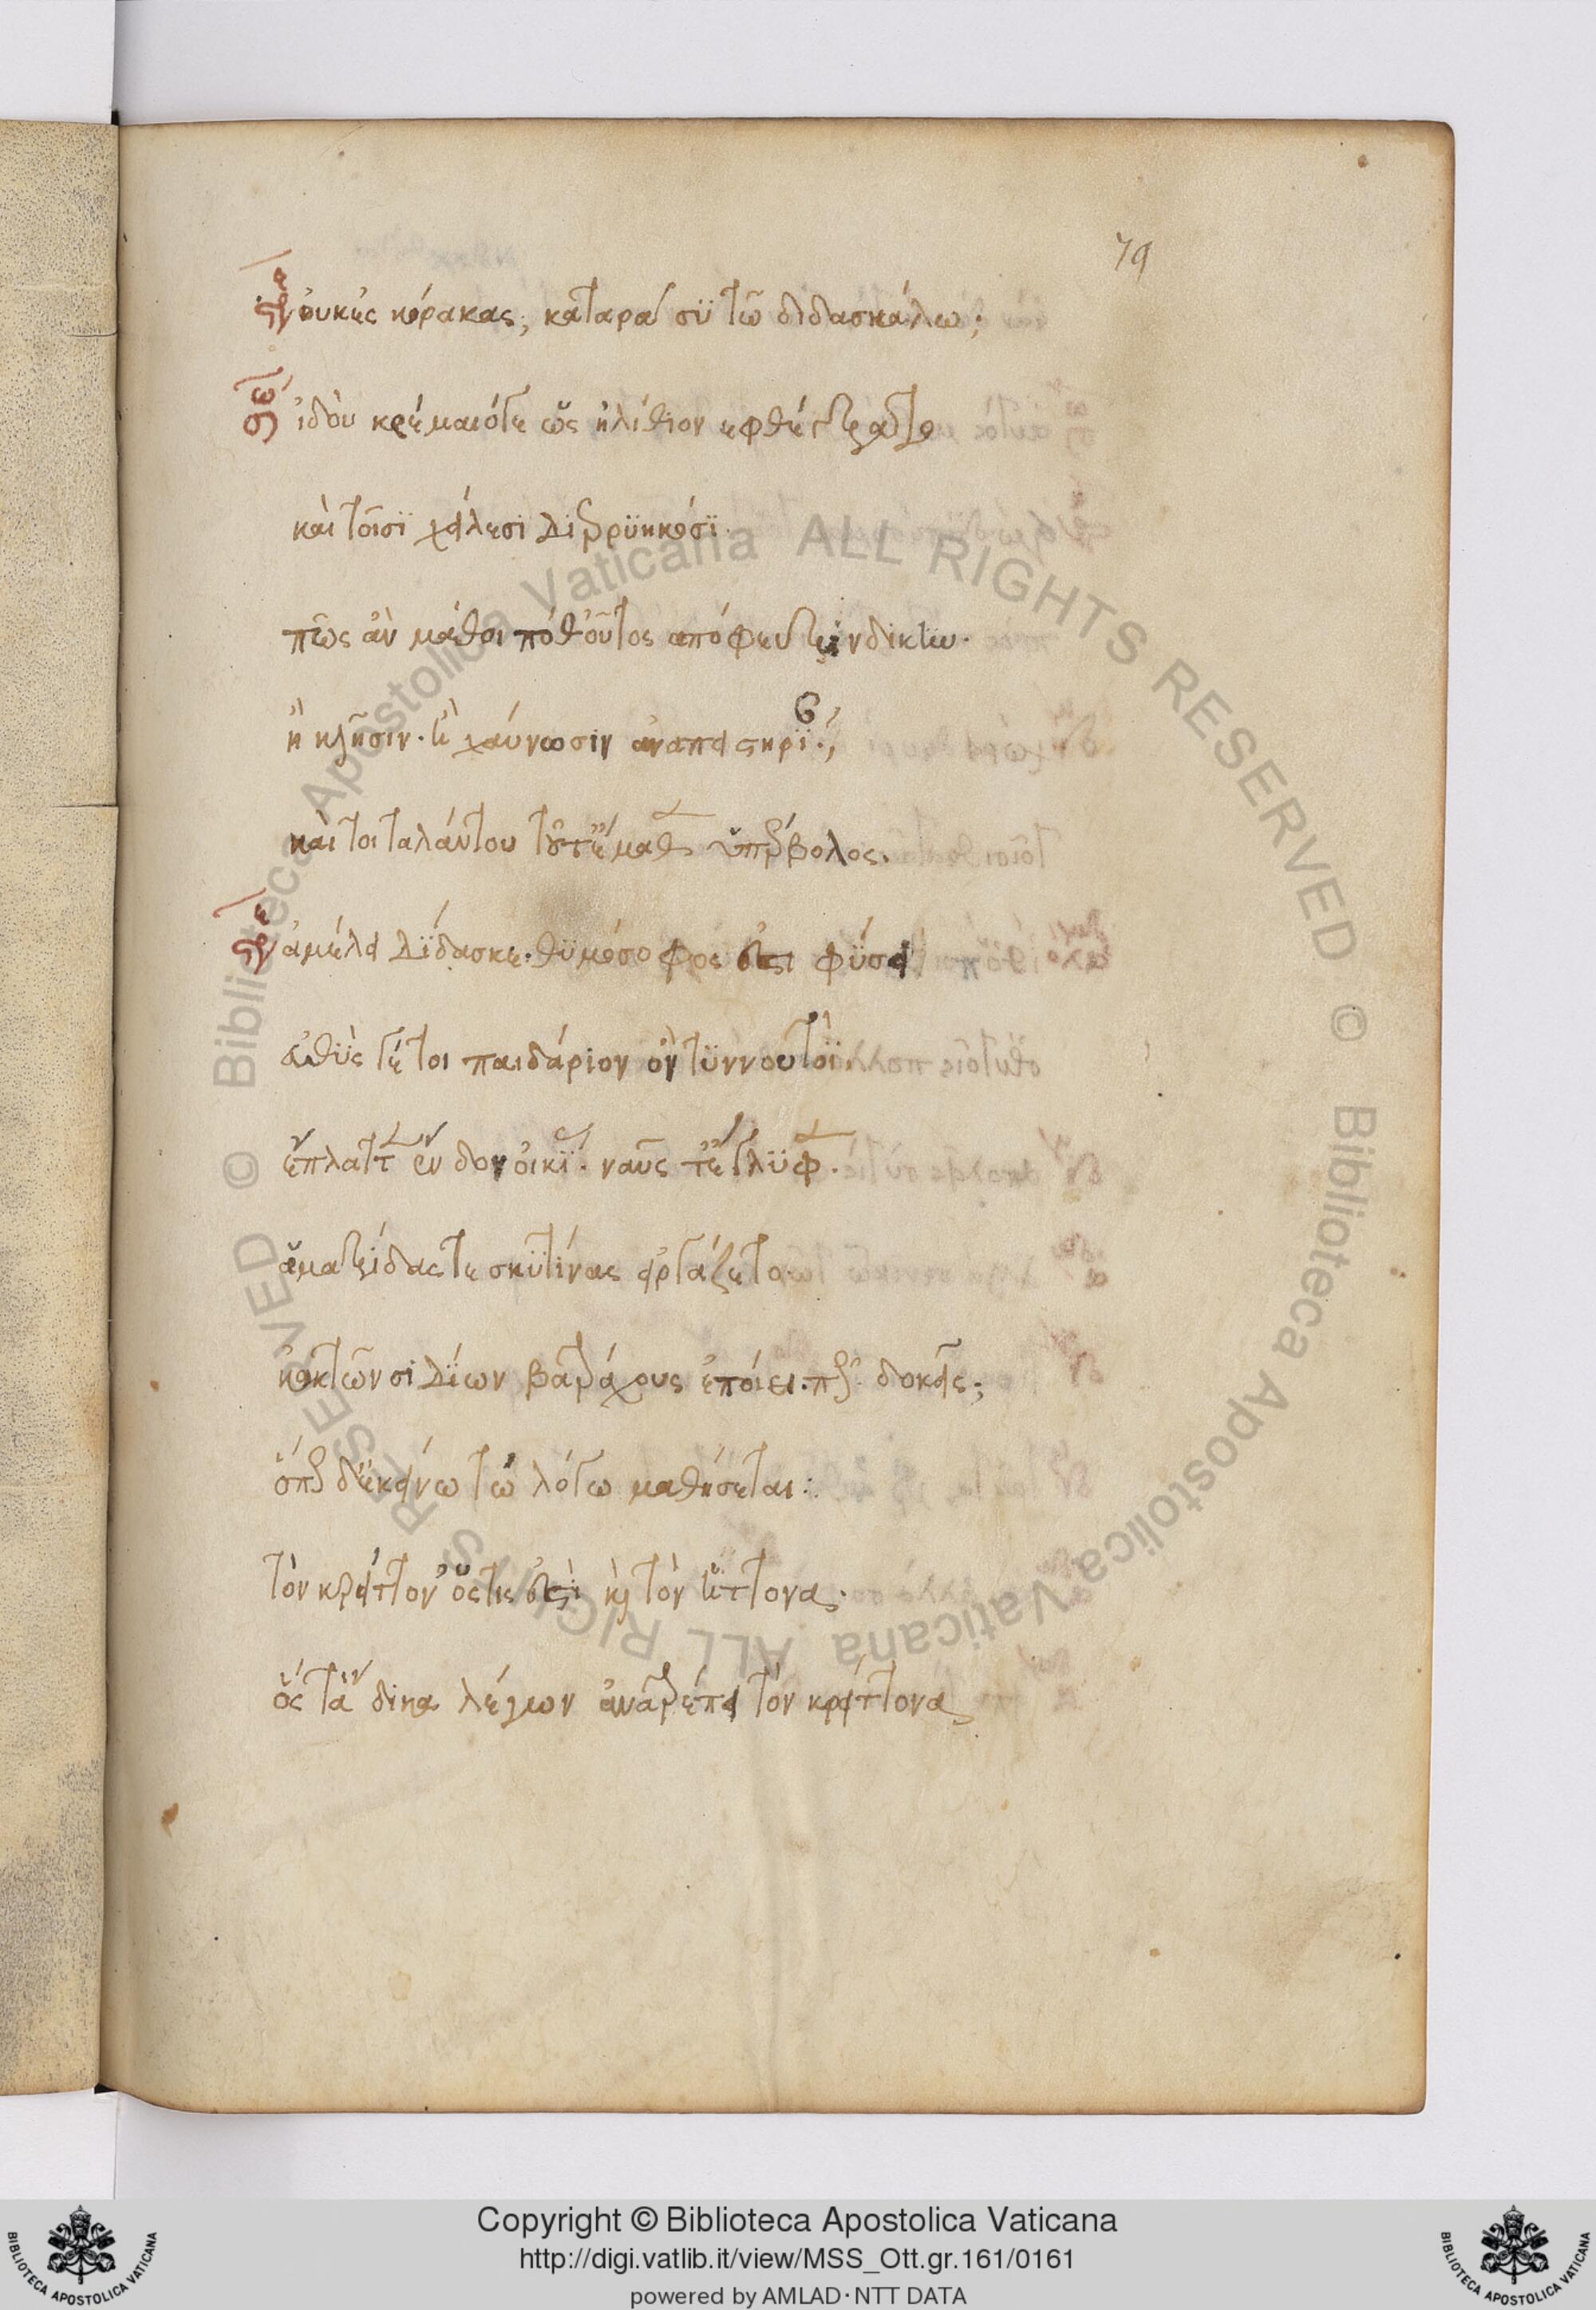 79
στρ οὐκ ἐς κόρακας; καταρᾶ σὺ τῶ διδασκάλω;
σω ἰδοὺ κρέμαιό γε ὡς ἠλίθιον ἐφθέγξατο
καὶ τοῖσι χείλεσι διερρυηκόσι.
πῶς ἂν μάθοι ποθ' οὗτος ἀπόφευξιν δίκτω.
ἢ κλῆσιν. ἢ χαύνωσιν ἀναπειστηρί.;
καί τοι ταλάντου τοῦτ' ἔμαθεν ὑπέρβολος.
στρ ἀμέλει δίδασκε. θυμόσοφός ἐστι φύσει
εὐθύς γέ τοι παιδάριον ὂν τυννουτοῒ.
ἔπλαττεν ἔνδον οἰκί. ναῦς τ' ἔγλυφεν.
ἁμαξίδας τε σκυτίνας εἰργάζετο
κἀκ τῶν σιδίων βατράχους ἐποίει. πῶς δοκεῖς;
ὅπως δ' ἐκείνω τὼ λόγω μαθήσεται:
τὸν κρείττον' ὅστις ἐστὶ καὶ τὸν ἥττονα.
ὃς τἄδικα λέγων ἀνατρέπει τὸν κρείττονα
Copyright © Biblioteca Apostolica Vaticana
http://digi.vatlib.it/view/MSS_Ott.gr.161/0161
powered by AMLAD·NTT DATA
BIBLIOTECA APOSTOLICA VATICANA
BIBLIOTECA APOSTOLICA VATICANA
© Biblioteca Apostolica Vaticana ALL RIGHTS RESERVED © Biblioteca Apostolica Vaticana ALL RIGHTS RESERVED